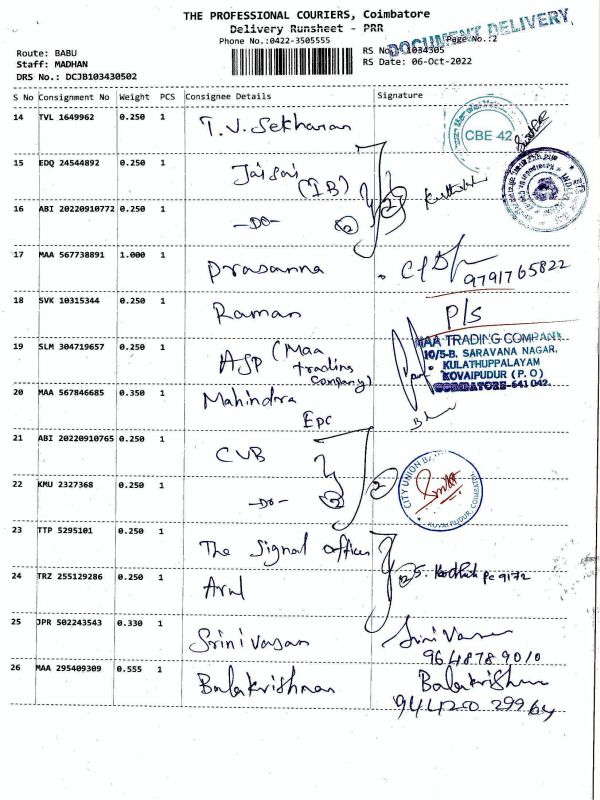 THE PROFESSIONAL COURIERS, Coimbatore
Delivery Runsheet - PRR
Phone No.:0422-3505555
Page No.:2
DOCUMENT DELIVERY
Route: BABU
Staff: MADHAN
DRS No.: DCJB103430502
RS No 1034305
RS Date: 06-Oct-2022
S No Consignment No Weight PCS Consignee Details Signature
14 TVL 1649962 0.250 1 T.V. Sekharan
CBE 42
15 EDQ 24544892 0.250 1 Jaisai (IB)
INDIA
16 ABI 20220910772 0.250 1 -Do- 2 2
17 MAA 567738891 1.000 1 Prasanna
9791765822
18 SVK 10315344 0.250 1 Raman P/S
19 SLM 304719657 0.250 1 ASP (Maa trading company)
MAA TRADING COMPANY
10/5-B, SARAVANA NAGAR,
KULATHUPPALAYAM
KOVAIPUDUR (P. O)
COIMBATORE-641 042.
20 MAA 567846685 0.350 1 Mahindra Epc
21 ABI 20220910765 0.250 1 CUB
CITY UNION BANK
KOVAIPUDUR, COIMBATORE
22 KMU 2327368 0.250 1 -Do- 2 2
23 TTP 5295101 0.250 1 The Signal Officer
2 S. Karthik PC 9172
24 TRZ 255129286 0.250 1 Arul
25 JPR 502243543 0.330 1 Srinivasan Srinivasan
9648789010
26 MAA 295409309 0.555 1 Balakrishnan Balakrishnan
944200 29964